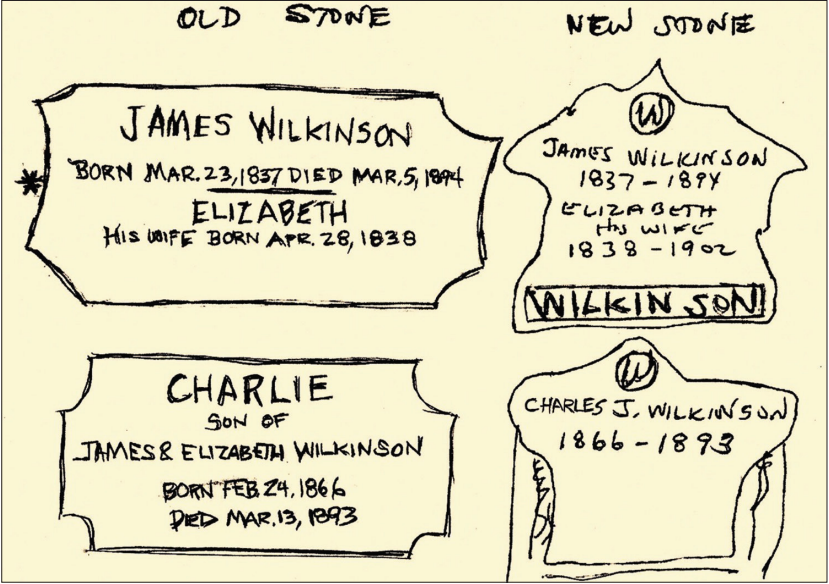 OLD STONE
JAMES WILKINSON
* BORN MAR. 23, 1837 DIED MAR. 5, 1894
ELIZABETH
HIS WIFE BORN APR. 28, 1838
CHARLIE
SON OF
JAMES & ELIZABETH WILKINSON
BORN FEB. 24, 1866
DIED MAR. 13, 1893
NEW STONE
W
JAMES WILKINSON
1837 - 1894
ELIZABETH
HIS WIFE
1838 - 1902
WILKINSON
W
CHARLES J. WILKINSON
1866 - 1893